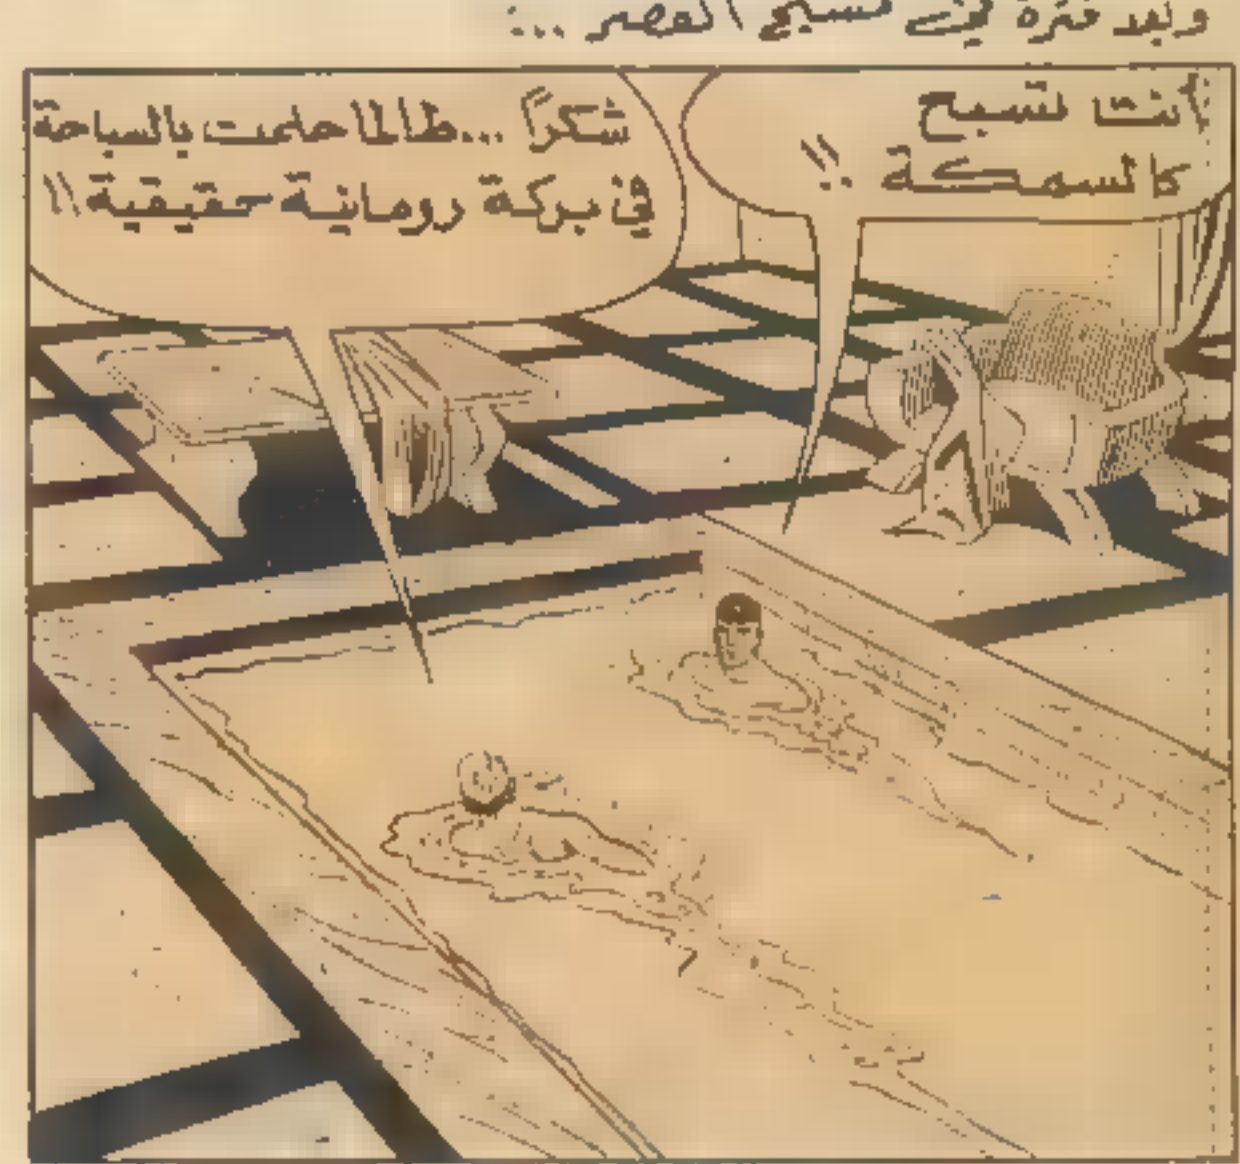 وبعد فترة في مسبح القصر ...:
أنت تسبح
كالسمكة !!
شكراً ...طالما حلمت بالسباحة
في بركة رومانية حقيقية !!